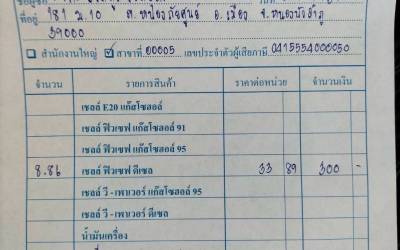 ที่อยู่ 181 ม.10 ต.หนองภัยศูนย์ อ.เมือง จ.หนองบัวลำภู
39000
สำนักงานใหญ่ ✓ สาขาที่ 00005 เลขประจำตัวผู้เสียภาษี 0415554000050
จำนวน รายการสินค้า ราคาต่อหน่วย จำนวนเงิน
เชลล์ E20 แก๊สโซฮอล์
เชลล์ ฟิวเซฟ แก๊สโซฮอล์ 91
เชลล์ ฟิวเซฟ แก๊สโซฮอล์ 95
8.86 เชลล์ ฟิวเซฟ ดีเซล 33 89 300 -
เชลล์ วี - เพาเวอร์ แก๊สโซฮอล์ 95
เชลล์ วี - เพาเวอร์ ดีเซล
น้ำมันเครื่อง